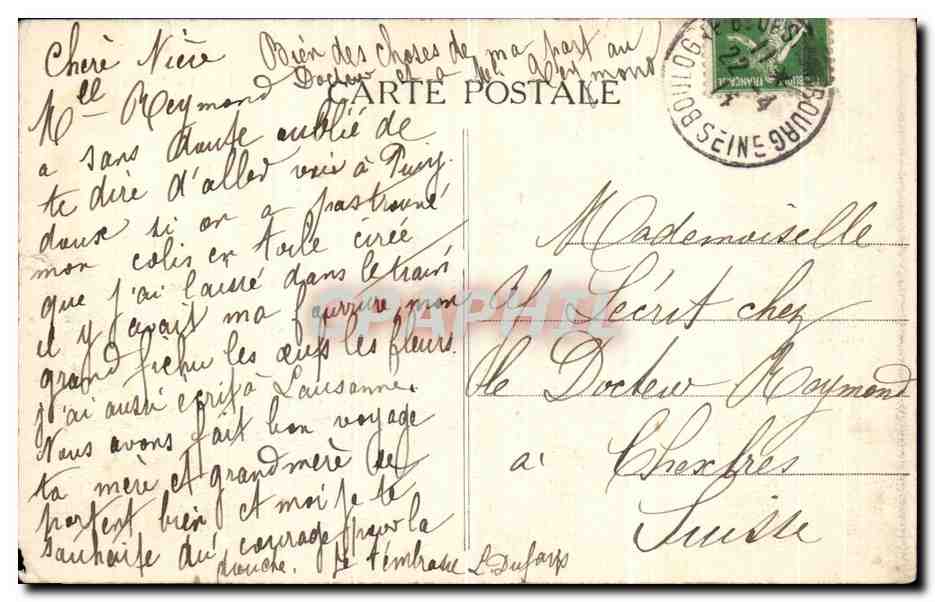 Chère Nièce
Bien des choses de ma part au
Docteur et a
Mlle Reymond
CARTE POSTALE
a sans doute oublié de
te dire d'aller voir à Puidy
doux si on a pas trouvé
mon colis en toile cirée
que j'ai laissé dans le train
il y avait ma fourrure, mon
grand fichu les œufs les fleurs.
j'ai aussi écrit à Lausanne.
Nous avons fait bon voyage
ta mère et grandmère se
portent bien et moi je te
souhaite du courage pour la
douche. Je t'embrasse L. Dufaux
Mademoiselle
Lécrit chez
le Docteur Reymond
a Chexbres
Suisse
BOULOGNE
BOURG (SEINE)
CPAPHIL